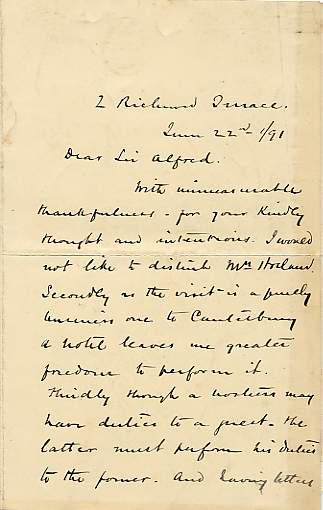 2 Richmond Terrace.
June 22nd /91
Dear Sir Alfred.
With unmeasurable
thankfulness - for your Kindly
thought and intentions. I would
not like to disturb Mrs
Secondly as the visit is a purely
business one to Canterbury
a hotel leaves me greater
freedom to perform it.
Thirdly though a hostess may
have duties to a guest - the
latter must perform his duties
to the former. And having letters